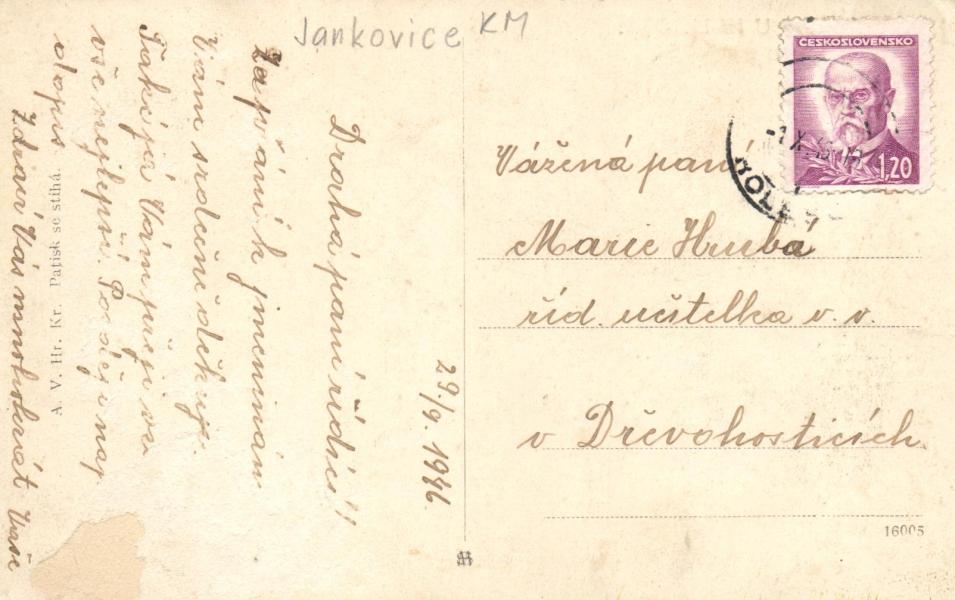 Jankovice KM
ČESKOSLOVENSKO
1,20
29./9. 1946.
Drahá paní řídící!
Za přání k jmeninám
Vám srdečně děkuji.
Také já Vám přeji
vše nejlepší.
dopis.
Zdraví Vás mnohokrát Vaše
A. V. Hr. Kr. Patisk se stíhá.
Vážená paní
Marie Hrubá
říd. učitelka v. v.
v Dřevohosticích.
16005